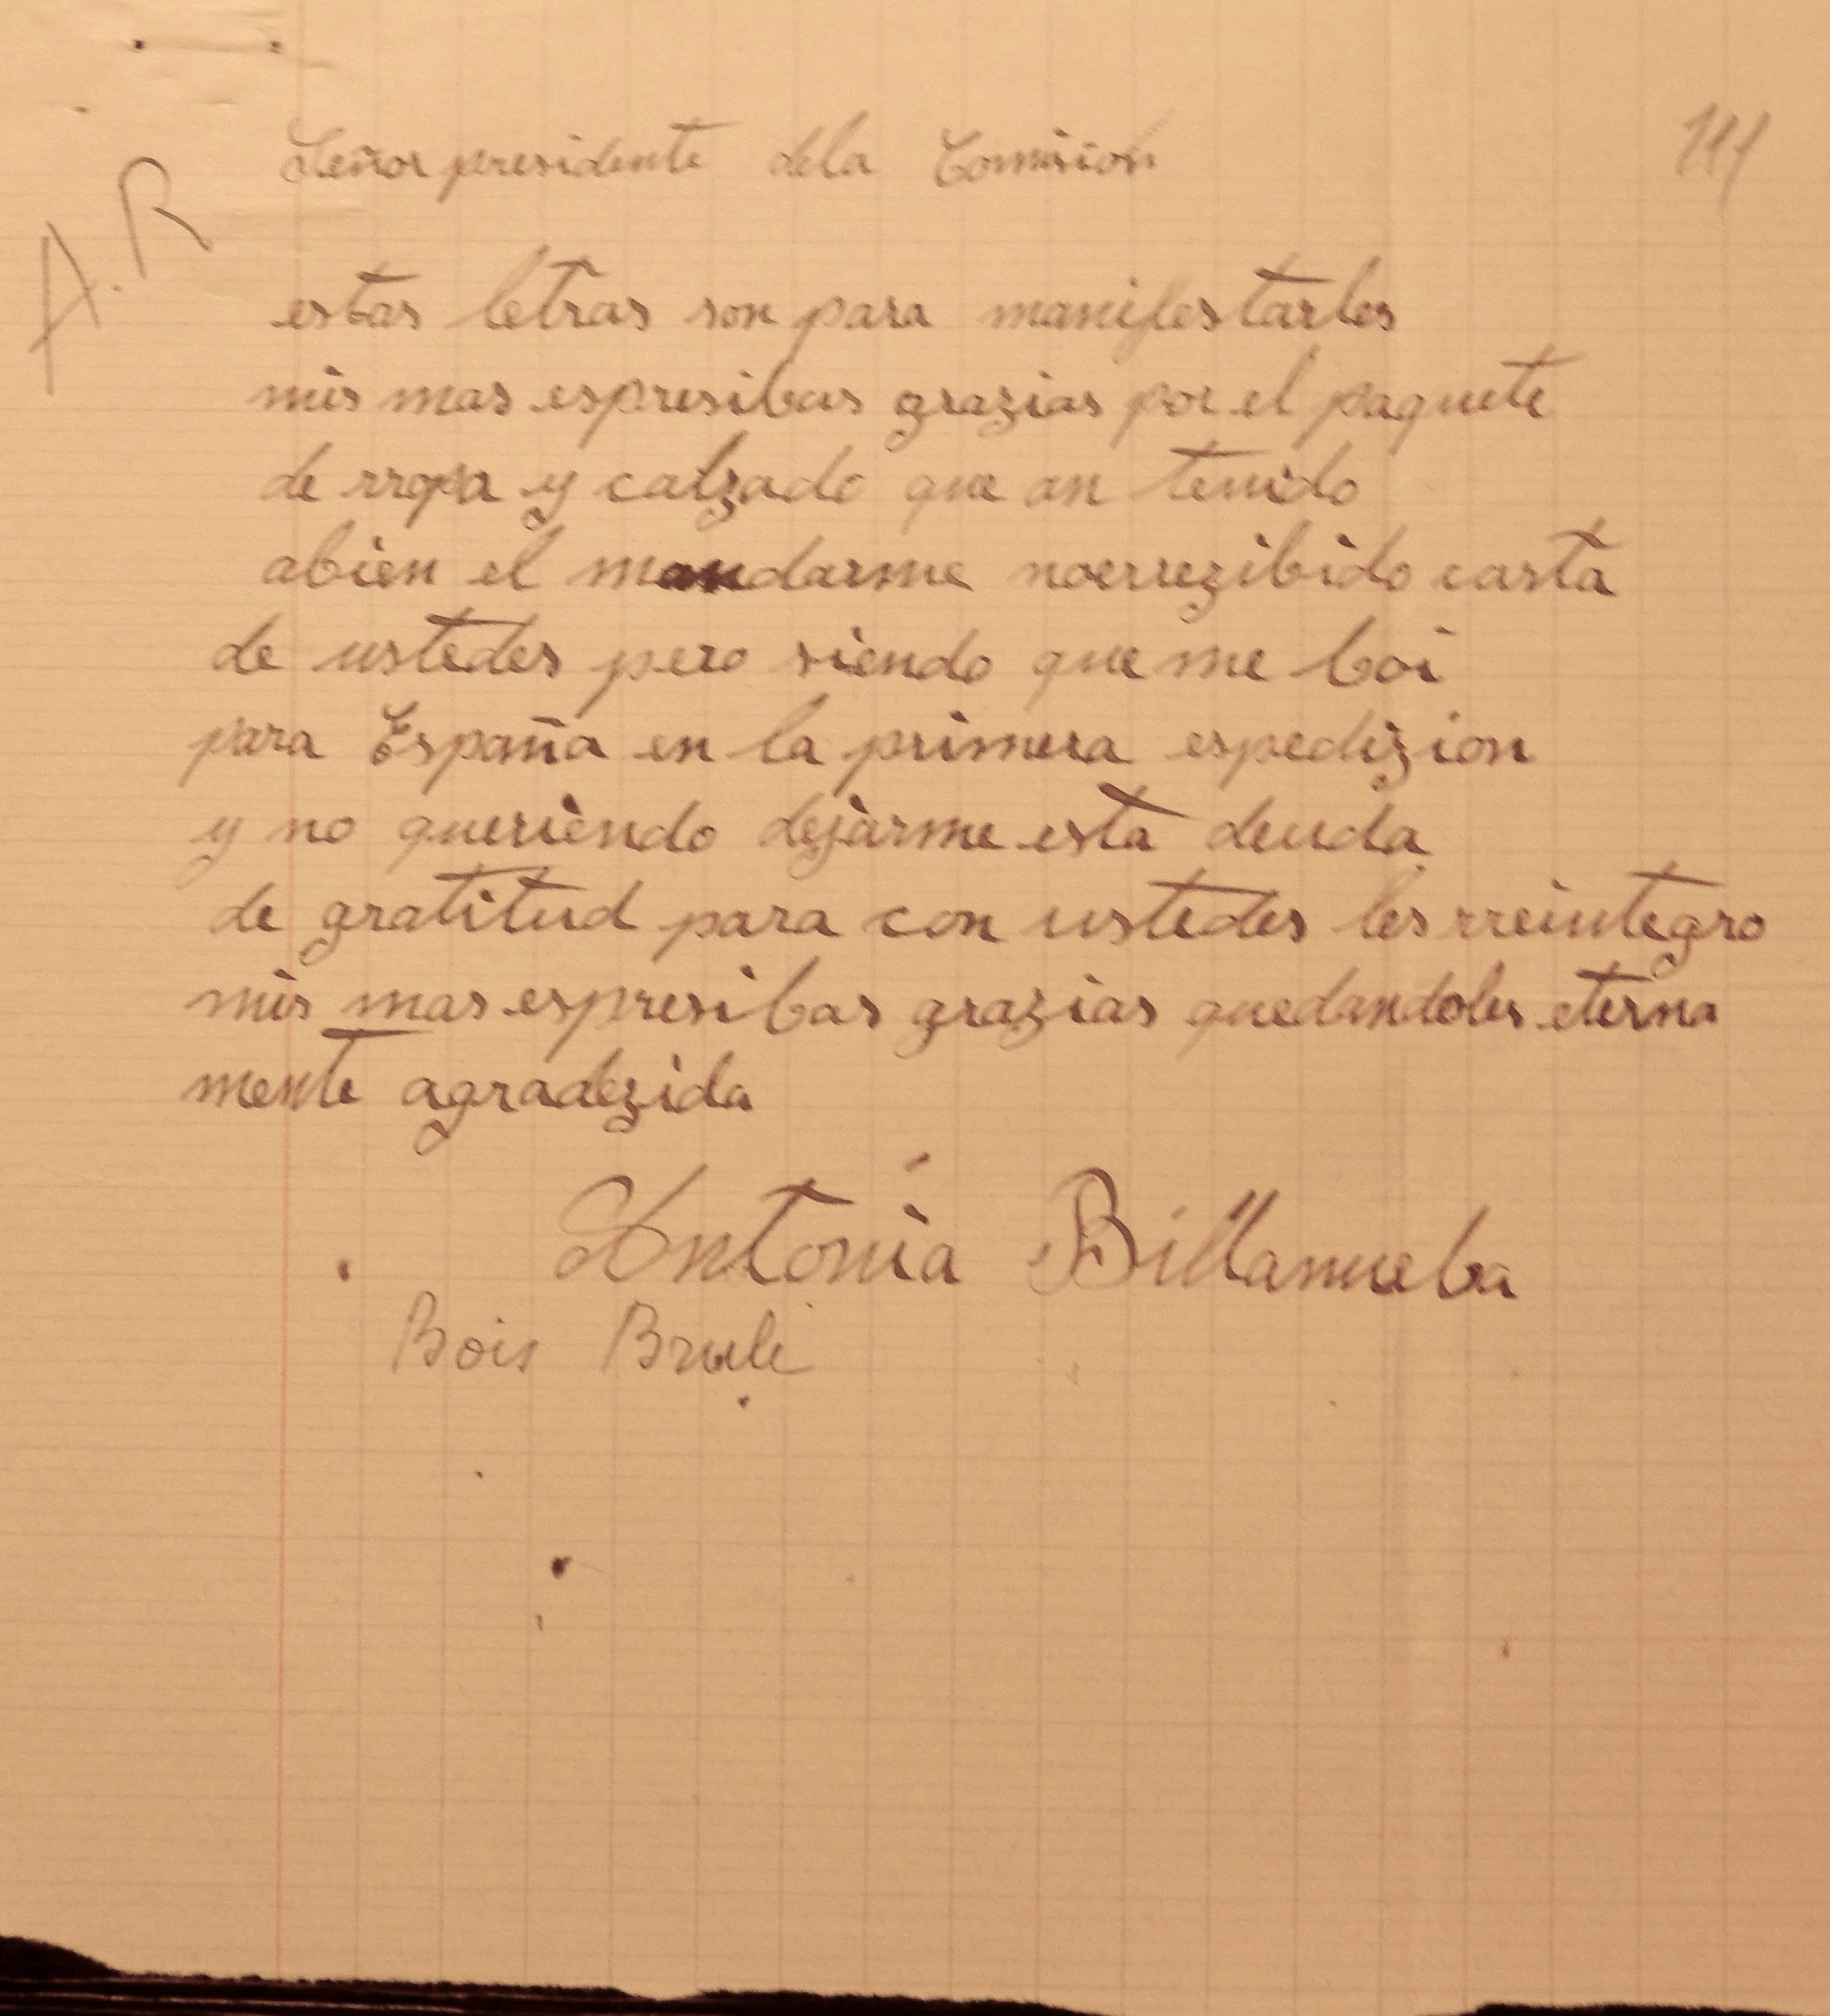 111
A.R
Señor presidente dela Comision
estas letras son para manifestarles
mis mas espresibas grazias por el paquete
de rropa y calzado que an tenido
abien el mandarme noerrezibido carta
de ustedes pero siendo que me boi
para España en la primera espedizion
y no queriendo dejarme esta deuda
de gratitud para con ustedes les rreintegro
mis mas espresibas grazias quedandoles eterna
mente agradezida
Antonia Billanueba
Bois Brule